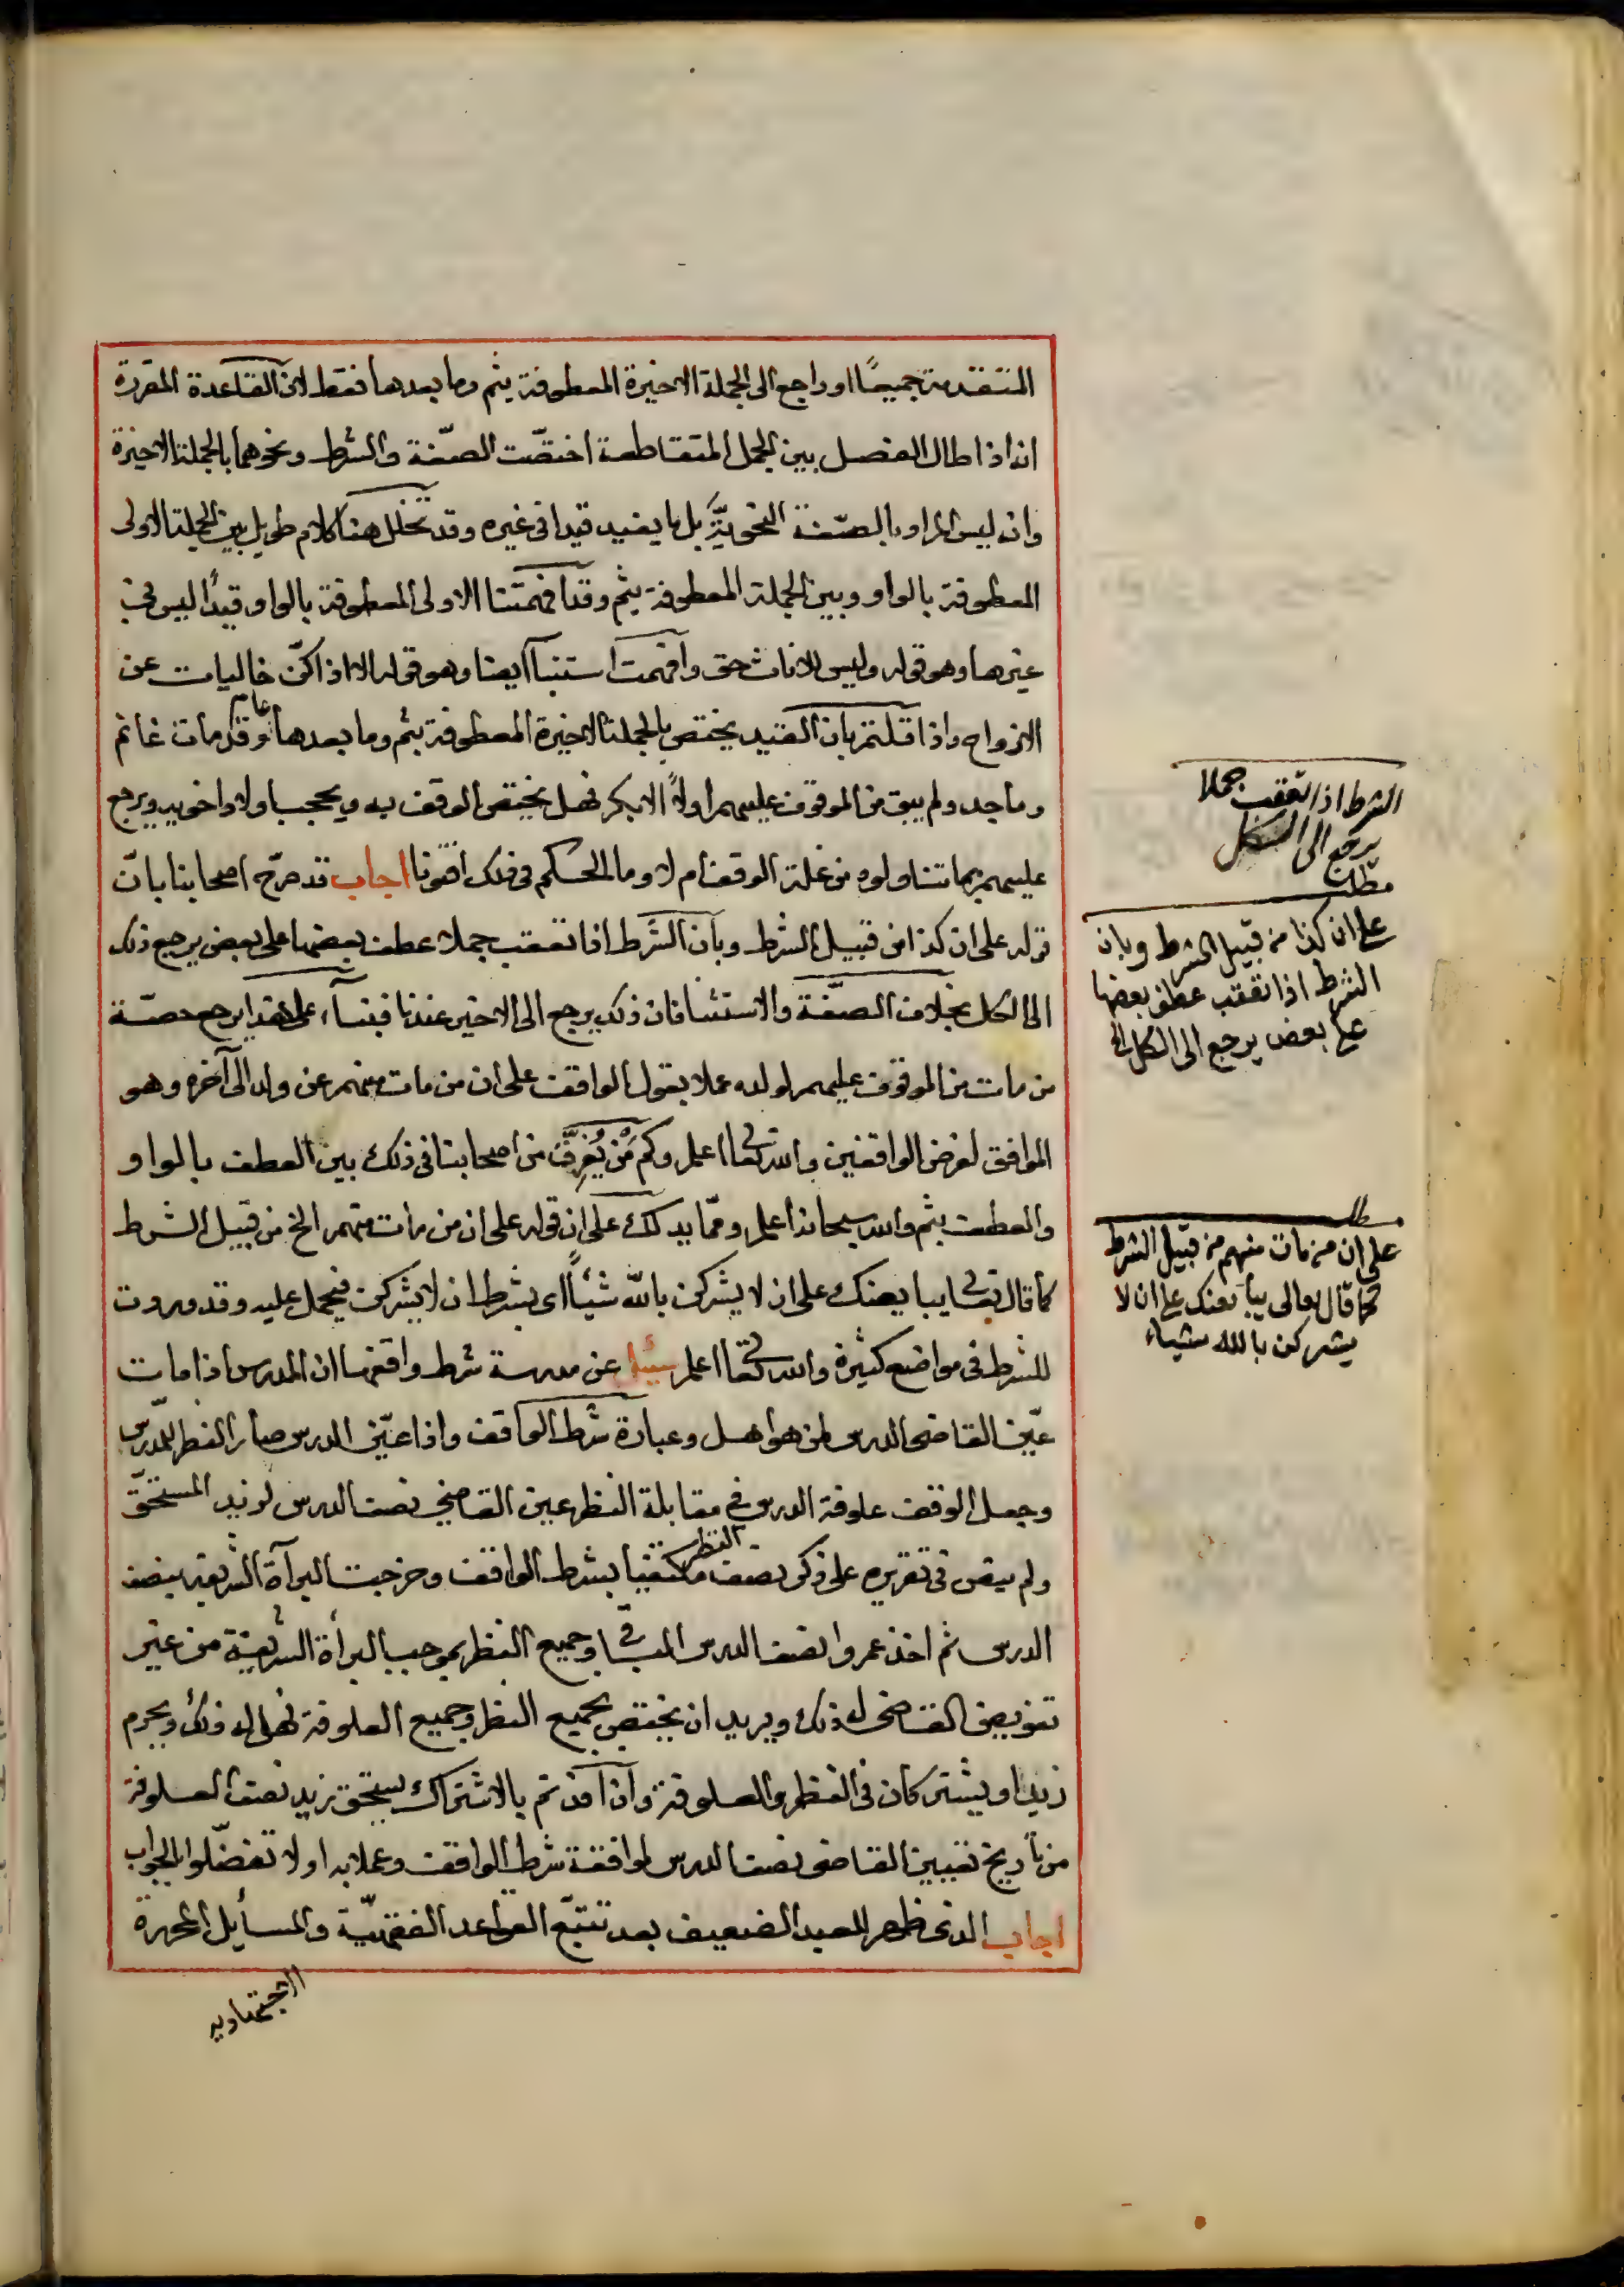 المتقدمة جميعًا او راجع الى الجملة الاخيرة المعطوفة بثم وما بعدها فقط لان القاعدة المقررة
انه اذا طال الفصل بين الجمل المتقاطعة اختصّت الصّفة والشرط ونحوهما بالجملة الاخيرة
وانه ليس المراد بالصّفة النحويّة بل ما يفيد قيدا في غيره وقد تخلّل هنا كلام طويل بين الجملة الاولى
المعطوفة بالواو وبين الجملة المعطوفة بثم وقد افهمتنا الاولى المعطوفة بالواو قيدًا ليس في
غيرها وهو قوله وليس للاناث حق وافهمت استثنآ ايضا وهو قوله الا اذا كنّ خاليات عن
الازواج واذا قلتم بان القيد يختص بالجملة الاخيرة المعطوفة بثم وما بعدها وقد مات غانم
وماجد ولم يبق من الموقوف عليهم اولاً الا بكر فهل يختص الوقف به ويحجب اولاد اخويه ويرجع
عليهم بما تناولوه من غلة الوقف ام لا وما الحكم في ذلك افتونا اجاب قد صرّح اصحابنا بانّ
قوله على ان كذا من قبيل الشرط وبان الشرط اذا تعقب جملا عطف بعضها على بعض يرجع ذلك
الى الكل بخلاف الصفة والاستثنا فان ذلك يرجع الى الاخير عندنا فبنآء على هذا يرجع حصّة
من مات من الموقوف عليهم لولده عملا بقول الواقف على ان من مات منهم عن ولد الى آخره وهو
الموافق لغرض الواقفين والله تعالى اعلم وكم مَنْ يُفرِّقَ من اصحابنا في ذلك بين العطف بالواو
والعطف بثم والله سبحانه اعلم وممّا يدلك على ان قوله على ان من مات منهم الخ من قبيل الشرط
كما قال تعالى يبايعنك على ان لا يشركن بالله شيئاً اى بشرط ان لا يشركن فيحمل عليه وقد وردت
للشرط في مواضع كثيرة والله تعالى اعلم سئل عن مدرسة شرط واقفها ان المدرس اذا مات
عيّن القاضى الدرس لمن هو اهل وعبارة شرط الواقف واذا عيّن الدرس صار النظر للمدرس
وجعل الوقف علوفة الدرس في مقابلة النظر عين القاضي نصف الدرس لزيد المستحقّ
ولم ينص في تقريره على ذكر نصف النظر مكتفيا بشرط الواقف وخرجت البرآة الشريفة بنصف
الدرس ثم اخذ عمرو نصف الدرس الباقي وجميع النظر بموجب البرأة الشريفة من غير
تفويض القاضى له ذلك ويريد ان يختص بجميع النظر وجميع العلوفة فهل له ذلك ويحرم
زيد او يشتركان في النظر والعلوفة وان افدتم بالاشتراك يستحق زيد نصف العلوفة
من تأريخ تعيين القاضى نصف الدرس لموافقة شرط الواقف وعملا به او لا تفضّلوا بالجواب
اجاب الذى ظهر للعبد الضعيف بعد تتبّع القواعد الفقهيّة والمسايل المحررة
الشرط اذا تعقب جملا
يرجع الى الكل
مطلب
على ان كذا من قبيل الشرط وبان
الشرط اذا تعقب عطف بعضها
على بعض يرجع الى الكل الخ
مطلب
على ان من مات منهم من قبيل الشرط
كما قال تعالى يبايعنك على ان لا
يشركن بالله شياء